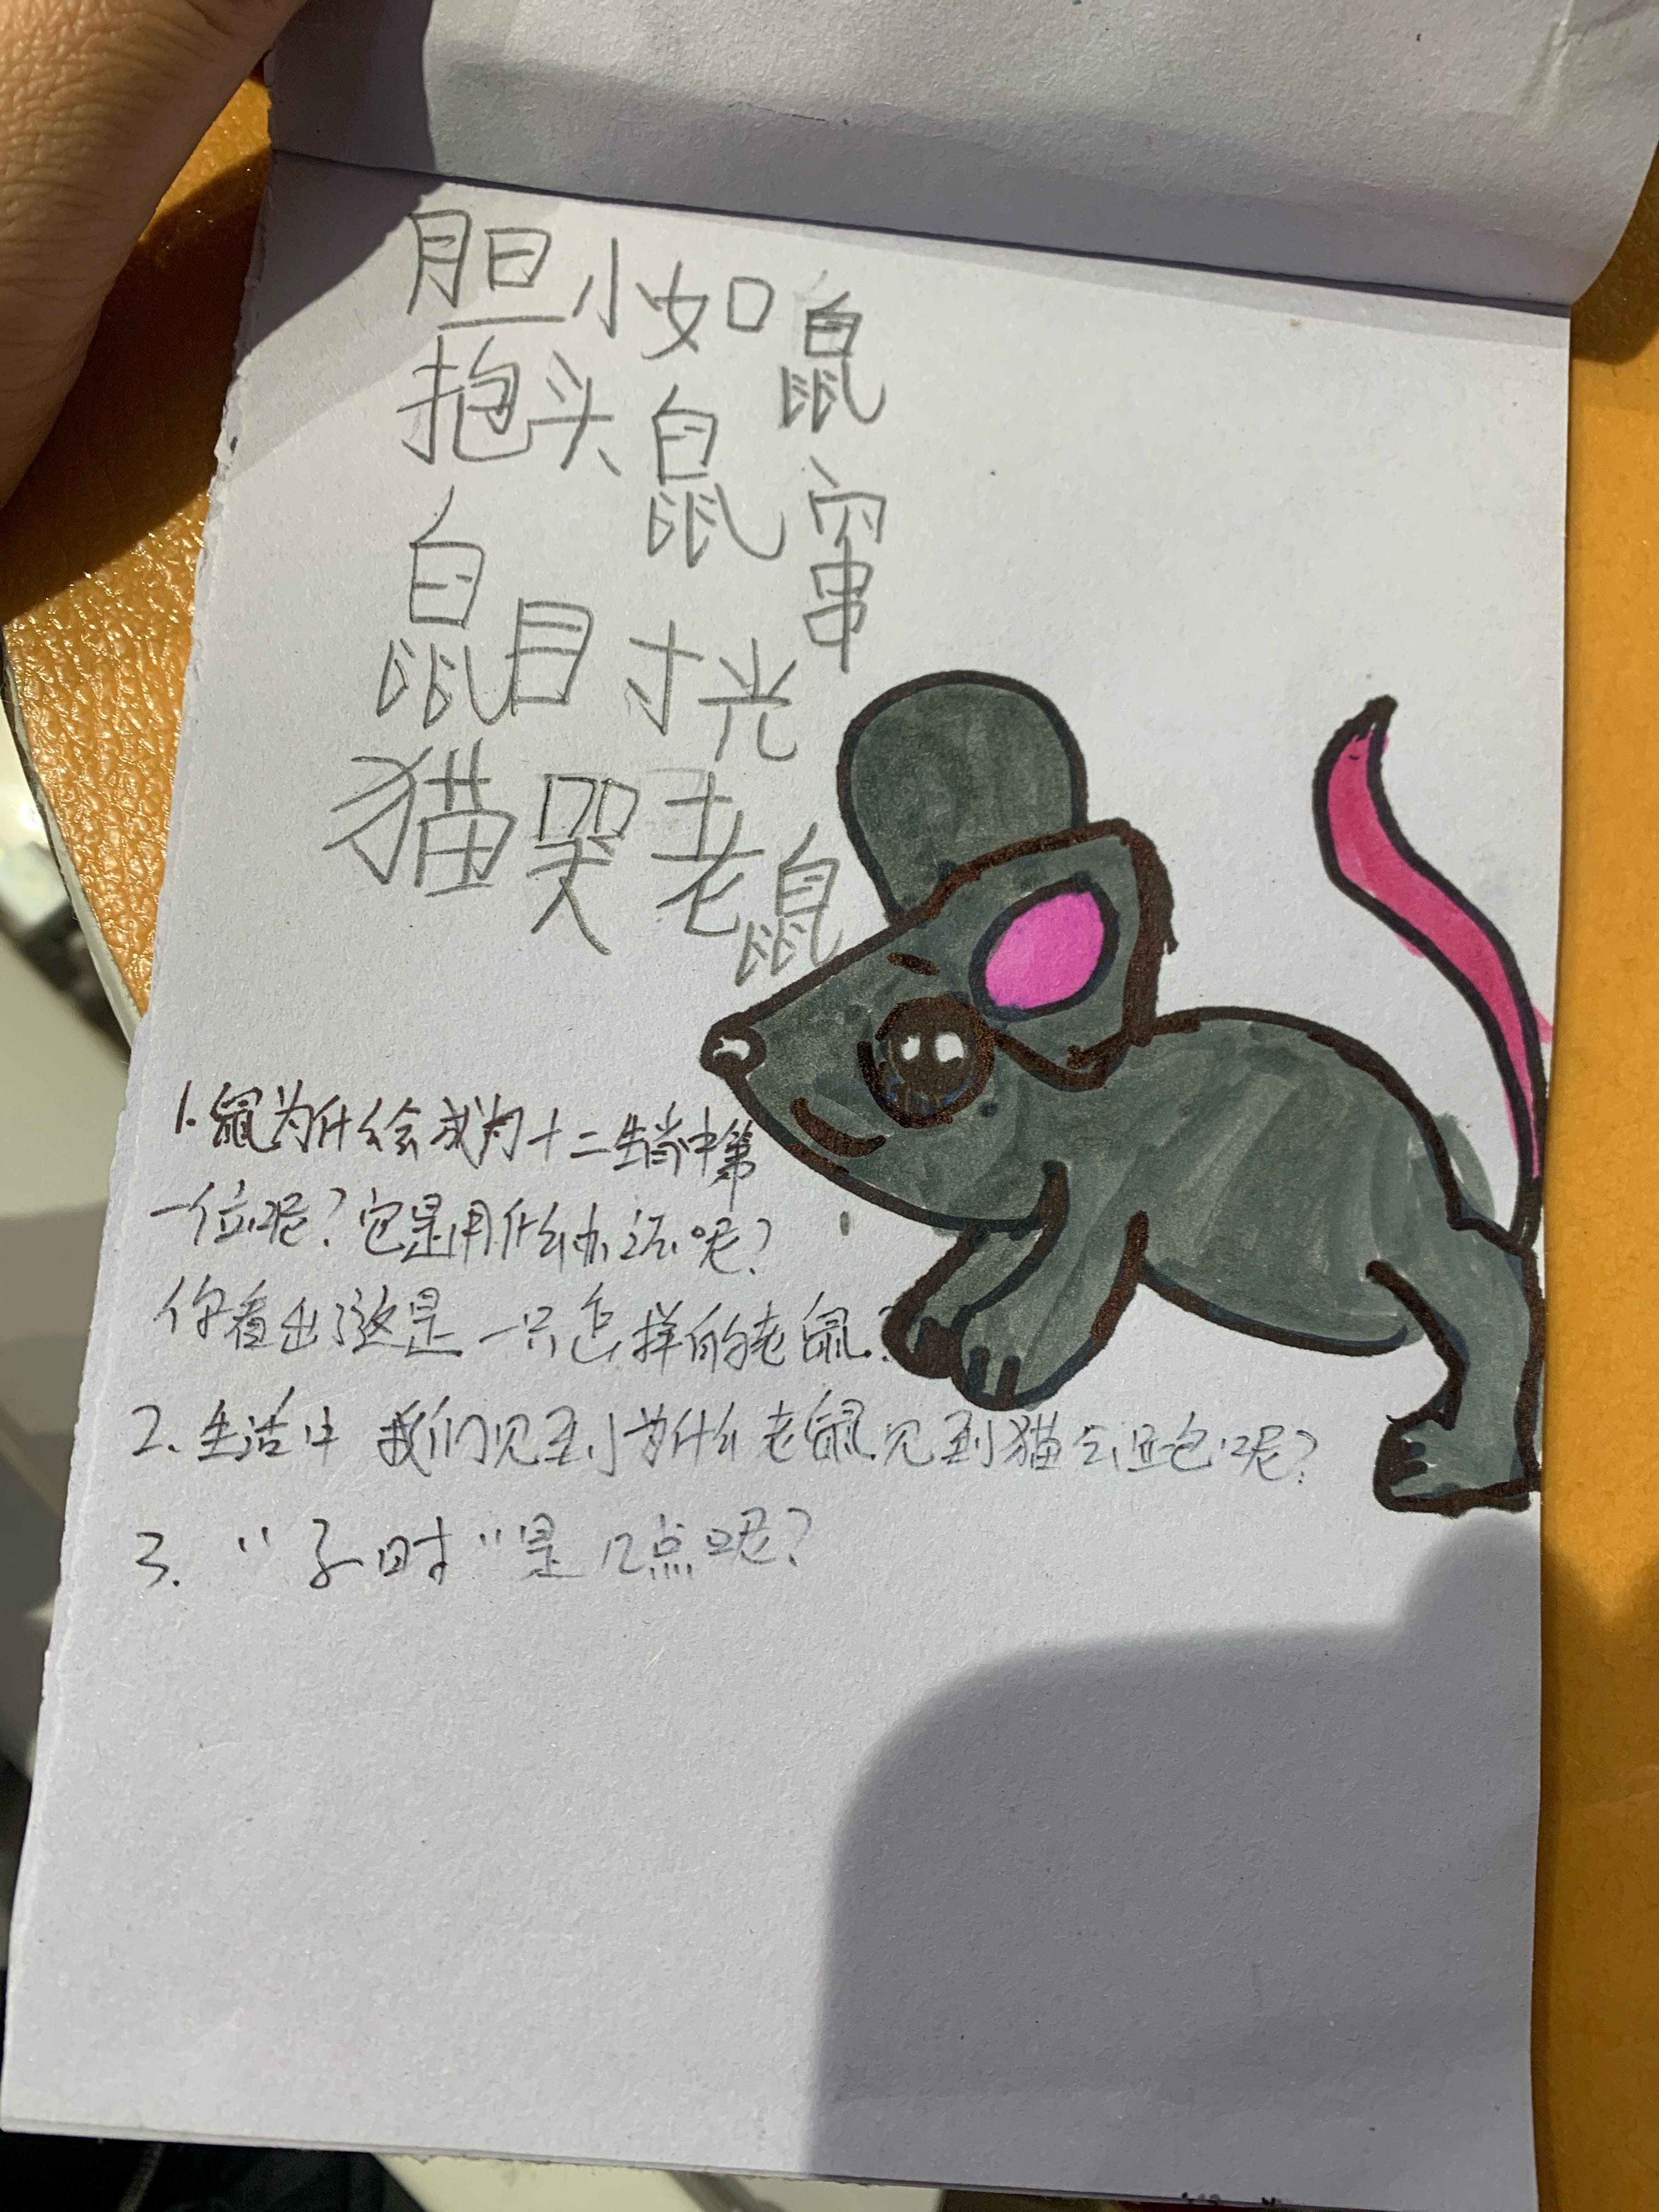 胆小如鼠
抱头鼠窜
鼠目寸光
猫哭老鼠
1.鼠为什么会成为十二生肖中第
一位呢?它是用什么办法呢?
你看出了这是一只怎样的老鼠?
2.生活中我们见到为什么老鼠见到猫会逃跑呢?
3."子时"是几点呢?